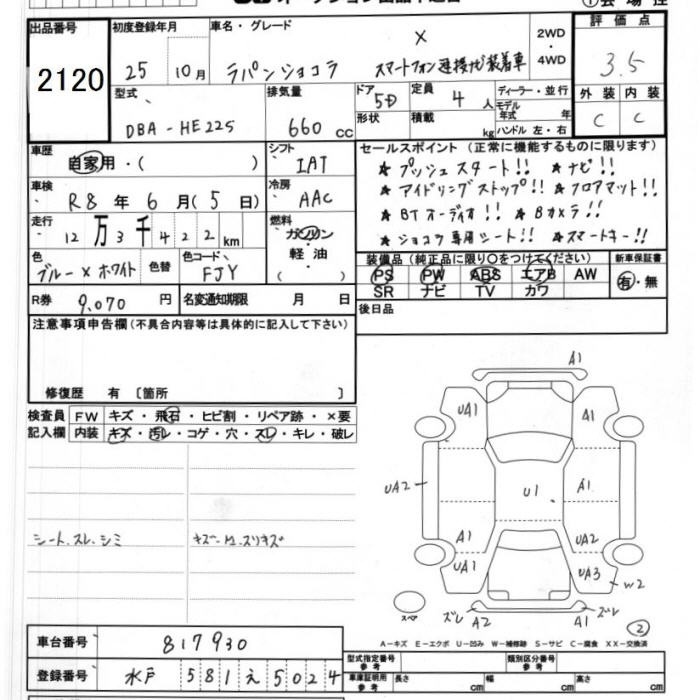 出品番号
2120
初度登録年月
25 10月
車名・グレード
X
ラパンショコラ スマートフォン連携ナビ装着車
2WD
4WD
評価点
3.5
外装 内装
C C
型式
DBA-HE22S
排気量
660 cc
ドア
5D
形状
定員
4 人
積載
kg
ディーラー・並行
モデル年式 年
ハンドル 左・右
車歴
自家用・( )
シフト
IAT
車検
R8年6月(5日)
冷房
AAC
走行
12万3千422km
燃料
ガソリン
軽油
( )
色
ブルー×ホワイト
色替
色コード
FJY
R券
9,070 円
名変通知期限 月 日
セールスポイント(正常に機能するものに限ります)
★プッシュスタート!! ★ナビ!!
★アイドリングストップ!! ★フロアマット!!
★BTオーディオ!! ★Bカメラ!!
★ショコラ専用シート!! ★スマートキー!!
装備品(純正品に限り○をつけてください)
PS PW ABS エアB AW
SR ナビ TV カワ
新車保証書
有・無
後日品
注意事項申告欄(不具合内容等は具体的に記入して下さい)
修復歴 有 〔箇所 〕
検査員記入欄
FW キズ・飛石・ヒビ割・リペア跡・×要
内装 キズ・汚レ・コゲ・穴・スレ・キレ・破レ
シート、スレ、シミ
A1
UA1
A1
UA2
U1
A1
A1
UA1
UA2
UA3
W2
スペア
ズレ
A2
A1
ズレ
2
A-キズ E-エクボ U-凹み W-補修跡 S-サビ C-腐食 XX-交換済
車台番号
817930
登録番号
水戸 581 え 5024
型式指定番号
参考
類別区分番号
参考
車庫証明用
参考
長さ cm
幅 cm
高さ cm